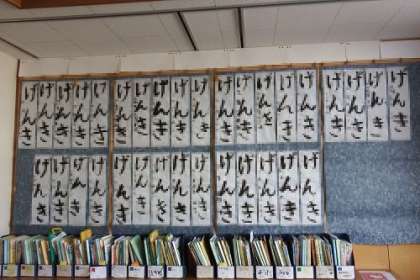 げんき
げんき
げんき
げんき
げんき
げんき
げんき
げんき
げんき
げんき
げんき
げんき
げんき
げんき
げんき
げんき
げんき
げんき
げんき
げんき
げんき
げんき
げんき
げんき
げんき
げんき
げんき
げんき
げんき
げんき
げんき
げんき
げんき
げんき